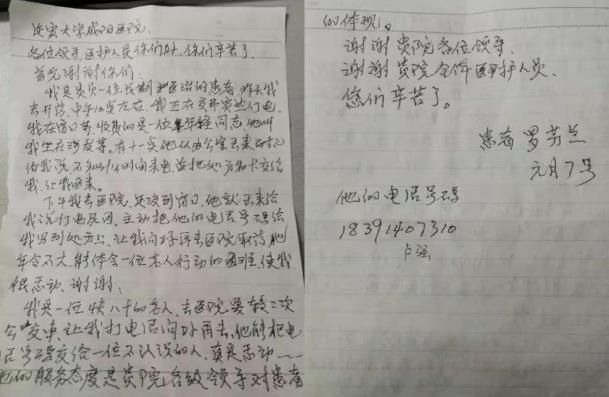 延安大学咸阳医院:
各位领导,医护人员你们好,你们辛苦了
首先谢谢你们:
我是贵院一位长期医治的患者,昨天我
去开药,中午12点左右,我正在交费突然停电,
我在窗口等,收费的是一位年轻同志,他叫
我坐在沙发等,在十一实他从办公室出来
给我说不知什么时间来电并把处方和卡交给
我,让我回来。
下午我去医院,还没到窗口,他就出来给
我说停电原因,主动把他的电话号码给
我写到处方上,让我问好再去医院取药,他
年令不大,能体会一位老人行动的困难,使我
很感动,谢谢:
我是一位快八十的老人,去医院要转二次
公交车,让我打电话问好再去,他能把电
话号码交给一位不认识的人,真是感动——
他的服务态度是贵院各级领导对患者
的体现。
谢谢贵院各位领导,
谢谢贵院全体医护人员,
您们辛苦了。
患者 罗芬兰
元月7号
他的电话号码
18391407310
卢强